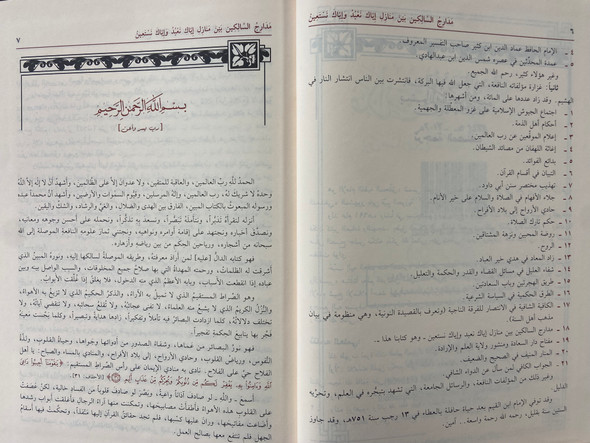 ٦
مَدَارِجُ السَّالِكِينَ بَيْنَ مَنَازِلِ إِيَّاكَ نَعْبُدُ وَإِيَّاكَ نَسْتَعِينُ
٤ ـ الإمام الحافظ عماد الدين ابن كثير صاحب التفسير المعروف.
٥ ـ عمدة المحدّثين في عصره شمس الدين ابن عبدالهادي.
وغير هؤلاء كثير، رحم الله الجميع.
ثانياً: غزارة مؤلفاته النافعة، التي جعل الله فيها البركة، فانتشرت بين الناس انتشار النار في
الهشيم. وقد زاد عددها على المائة، ومن أشهرها:
١ ـ اجتماع الجيوش الإسلامية على غزو المعطّلة والجهمية.
٢ ـ أحكام أهل الذمة.
٣ ـ إعلام الموقّعين عن رب العالمين.
٤ ـ إغاثة اللهفان من مصائد الشيطان.
٥ ـ بدائع الفوائد.
٦ ـ التبيان في أقسام القرآن.
٧ ـ تهذيب مختصر سنن أبي داود.
٨ ـ جلاء الأفهام في الصلاة والسلام على خير الأنام.
٩ ـ حادي الأرواح إلى بلاد الأفراح.
١٠ ـ حكم تارك الصلاة.
١١ ـ روضة المحبين ونزهة المشتاقين.
١٢ ـ الروح.
١٣ ـ زاد المعاد في هدي خير العباد.
١٤ ـ شفاء العليل في مسائل القضاء والقدر والحكمة والتعليل.
١٥ ـ طريق الهجرتين وباب السعادتين.
١٦ ـ الطرق الحكمية في السياسة الشرعية.
١٧ ـ الكافية الشافية في الانتصار للفرقة الناجية (وتعرف بالقصيدة النونية، وهي منظومة في بيان
مذهب أهل السنة).
١٨ ـ مدارج السالكين بين منازل إياك نعبد وإياك نستعين ـ وهو كتابنا هذا ـ.
١٩ ـ مفتاح دار السعادة ومنشور ولاية العلم والإرادة.
٢٠ ـ المنار المنيف في الصحيح والضعيف.
٢١ ـ الجواب الكافي لمن سأل عن الدواء الشافي.
وغير ذلك من المؤلفات النافعة، والرسائل الجامعة، التي تشهد بتبحُّره في العلم، وتحرّيه
الدليل.
وقد توفي الإمام ابن القيم بعد حياة حافلة بالعطاء في ١٣ رجب سنة ٧٥١هـ، وقد جاوز
الستين سنة بقليل، رحمه الله رحمة واسعة.. آمين.
مَدَارِجُ السَّالِكِينَ بَيْنَ مَنَازِلِ إِيَّاكَ نَعْبُدُ وَإِيَّاكَ نَسْتَعِينُ
٧
بِسْمِ اللَّهِ الرَّحْمَنِ الرَّحِيمِ
الحمدُ للَّه ربِّ العالمين، والعاقبة للمتقين، ولا عدوان إلاَّ على الظَّالمين، وأشهدُ أنْ لا إلٰه إلاَّ اللَّهُ
وحدهُ لا شريكَ لهُ، رب العالمين، وإلٰهُ المرسلين، وقيُّوم السَّموات والأرضين، وأشهد أنَّ محمداً عبدُه
ورسوله المبعوثُ بالكتاب المبين، الفارقِ بين الهدى والضلال، والغيِّ والرشاد، والشكِّ واليقين.
أنزله لنقرأهُ تَدَبُّراً، ونتأملهُ تَبصُّراً، ونسعد به تذكُّراً، ونحمله على أحسن وجوهه ومعانيه،
ونصدِّق أخباره ونجتهد على إقامة أوامره ونواهيه، ونجتني ثمار علومه النافعة الموصلة إلى الله
سبحانه من أشجاره، ورياحين الحِكم من بين رياضه وأزهاره.
فهو كتابه الدالُّ [عليه] لمن أراد معرفتَهُ، وطريقه الموصلة لسالكها إليه، ونوره المبينُ الذي
أشرقت له الظلماتُ، ورحمته المهداةُ التي بها صلاحُ جميع المخلوقات، والسبب الواصل بينه وبين
عباده إذا انقطعت الأسباب، وبابه الأعظمُ الذي منه الدخول، فلا يغلقُ إذا غُلِّقت الأبوابُ.
وهو الصِّراط المستقيمُ الذي لا تميلُ به الآراءُ، والذكرُ الحكيمُ الذي لا تزيغُ به الأهواءُ،
والنزُلُ الكريمُ الذي لا يشبعُ منه العلماءُ، لا تفنى عجائبُه، ولا تُقلعُ سحائبُه، ولا تنقضي آياتُه، ولا
تختلف دلالاتُه، كلما ازدادت البصائرُ فيه تأملاً وتفكيراً، زادها هدايةً وتبصيراً، وكلما بَجَستْ معينهُ
فجَّر لها ينابيعَ الحكمةِ تفجيراً.
فهو نورُ البصائر من عماها، وشفاءُ الصدور من أدوائها وجواها، وحياةُ القلوب، ولذَّةُ
النُّفوس، ورياضُ القلوب، وحادي الأرواح، إلى بلاد الأفراح، والمنادي بالمساء والصباح: يا أهلَ
الفلاح حيَّ على الفلاح. نادى به منادي الإيمان على رأس الصِّراط المستقيم:
[الأحقاف: ٣١].
أسمعَ ـ واللَّهِ ـ لو صادف آذاناً واعية، وبصَّرَ لو صادف قلوباً من الفساد خالية، لكنْ عَصَفتْ
على القلوب هذه الأهواءُ فأطفأت مصابيحَها، وتمكنت منها آراءُ الرجال فأغلقت أبوابَ رشدها
وأضاعت مفاتيحَها، وران عليها كسبُها، فلم تجد حقائقُ القرآن إليها منفَذاً، وتحكَّمتْ فيها أسقامُ
الجهل فلم تنتفع معها بصالح العمل.